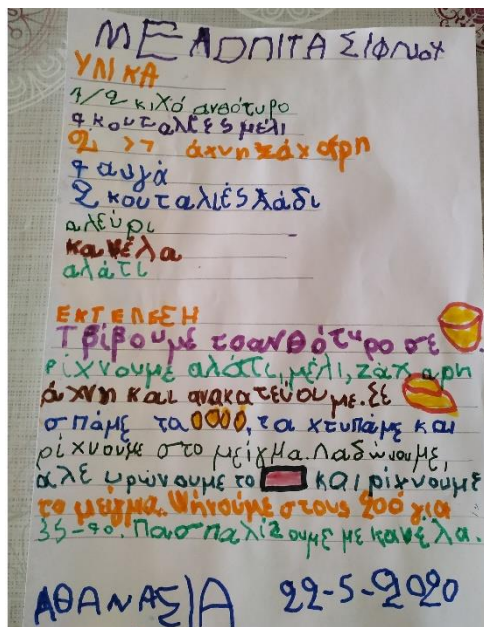 ΜΕΛΟΠΙΤΑ ΣΙΦΝΟΥ
ΥΛΙΚΑ
1/2 κιλό ανθότυρο
4 κουταλιές μέλι
2 >> άχνη ζάχαρη
4 αυγά
2 κουταλιές λάδι
αλεύρι
κανέλα
αλάτι
ΕΚΤΕΛΕΣΗ
Τρίβουμε το ανθότυρο σε
ρίχνουμε αλάτι, μέλι, ζάχαρη
άχνη και ανακατεύουμε. Σε
σπάμε τα , τα χτυπάμε και
ρίχνουμε στο μείγμα. Λαδώνουμε,
αλευρώνουμε το και ρίχνουμε
το μείγμα. Ψήνουμε στους 200 για
35-40. Πασπαλίζουμε με κανέλα.
ΑΘΑΝΑΣΙΑ 22-5-2020